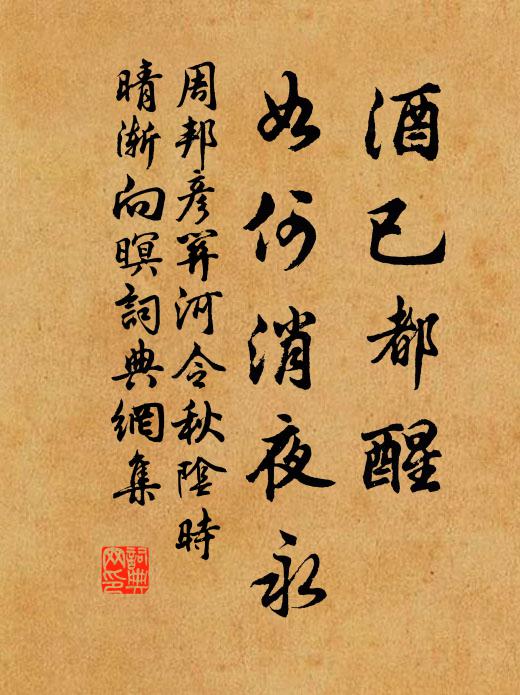 酒已都醒
如何消夜永
周邦彦关河令秋陰時
晴漸向暝詞典網集
詞典網印